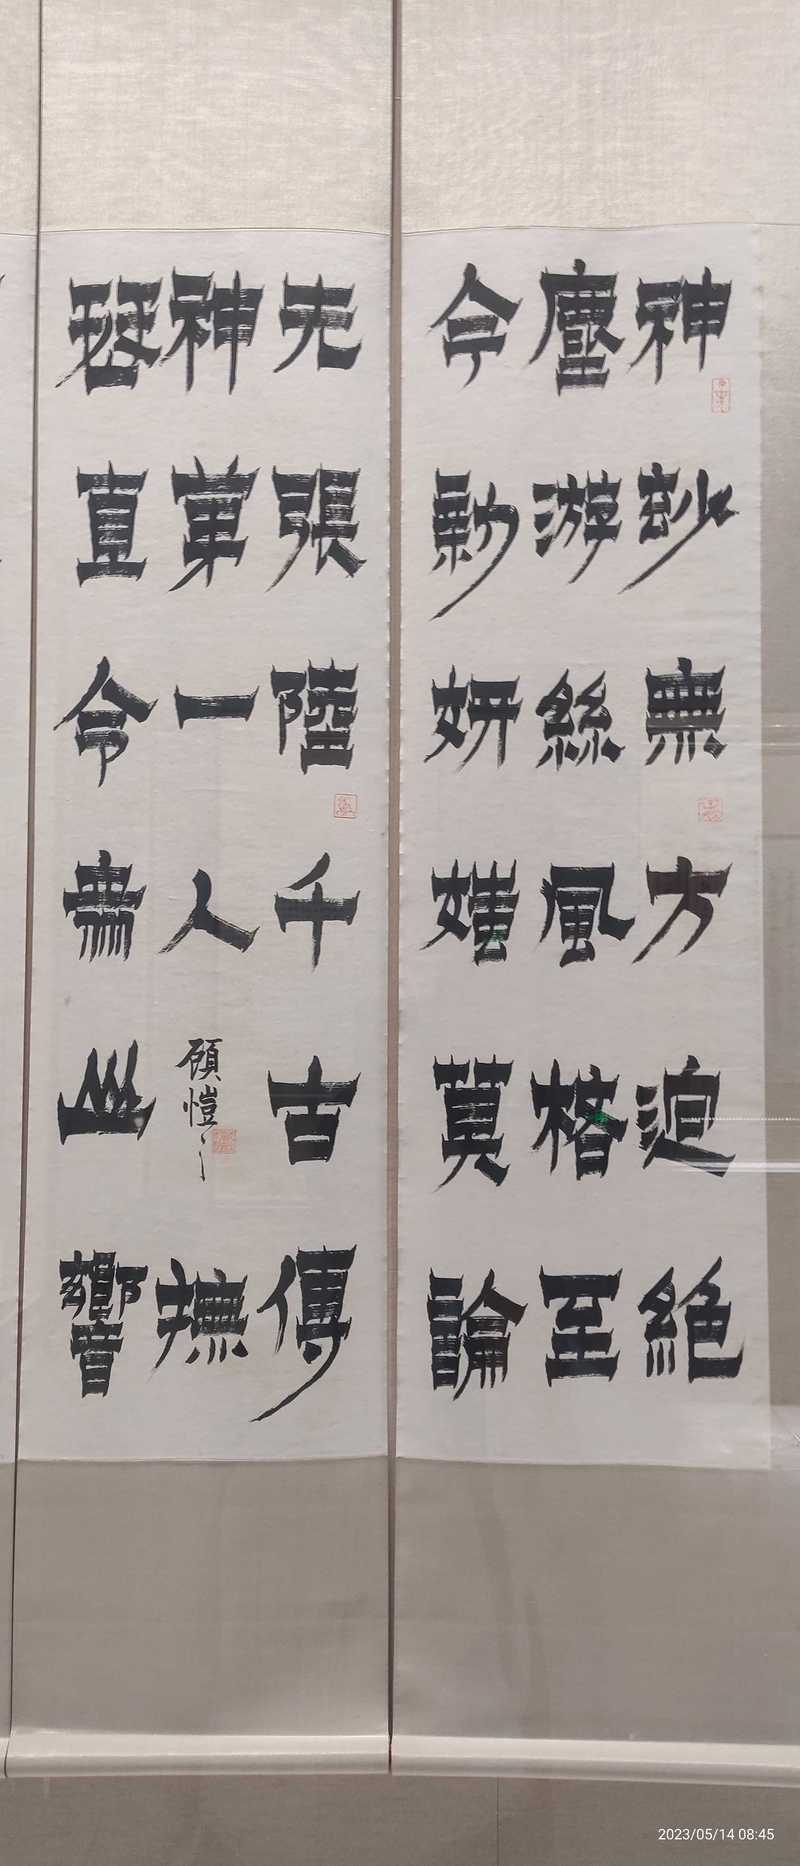 神玅無方迫絕
塵游絲風格至
今新妍媸莫論
先張陸千古傳
神第一人
顧愷之
撫
琴直令山響
2023/05/14 08:45